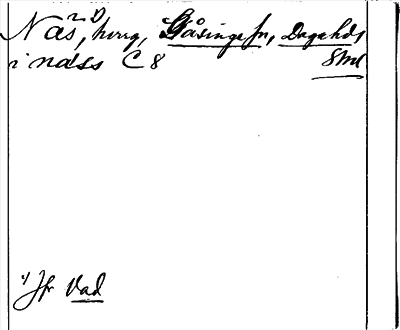 Näs, herrg, Gåsinge sn, Daga hd,
i näss C 8 Sml
1) Jfr Vad